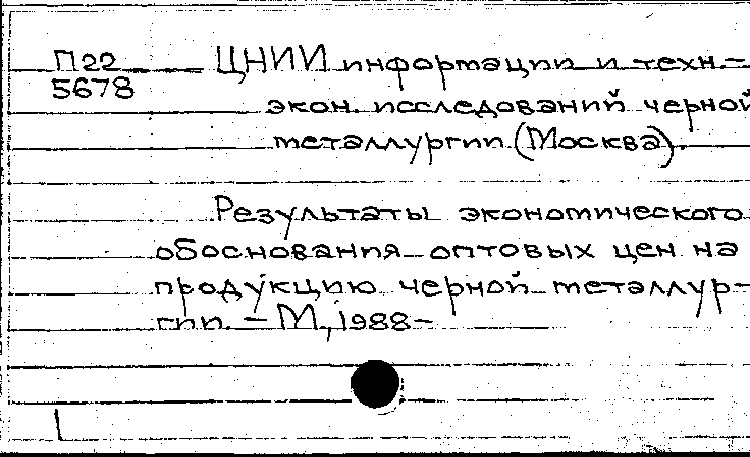 П22 ЦНИИ информации и техн.-
5678 экон. исследований черной
металлургии (Москва).
Результаты экономического
обоснования оптовых цен на
продукцию черной металлур-
гии. – М., 1988–